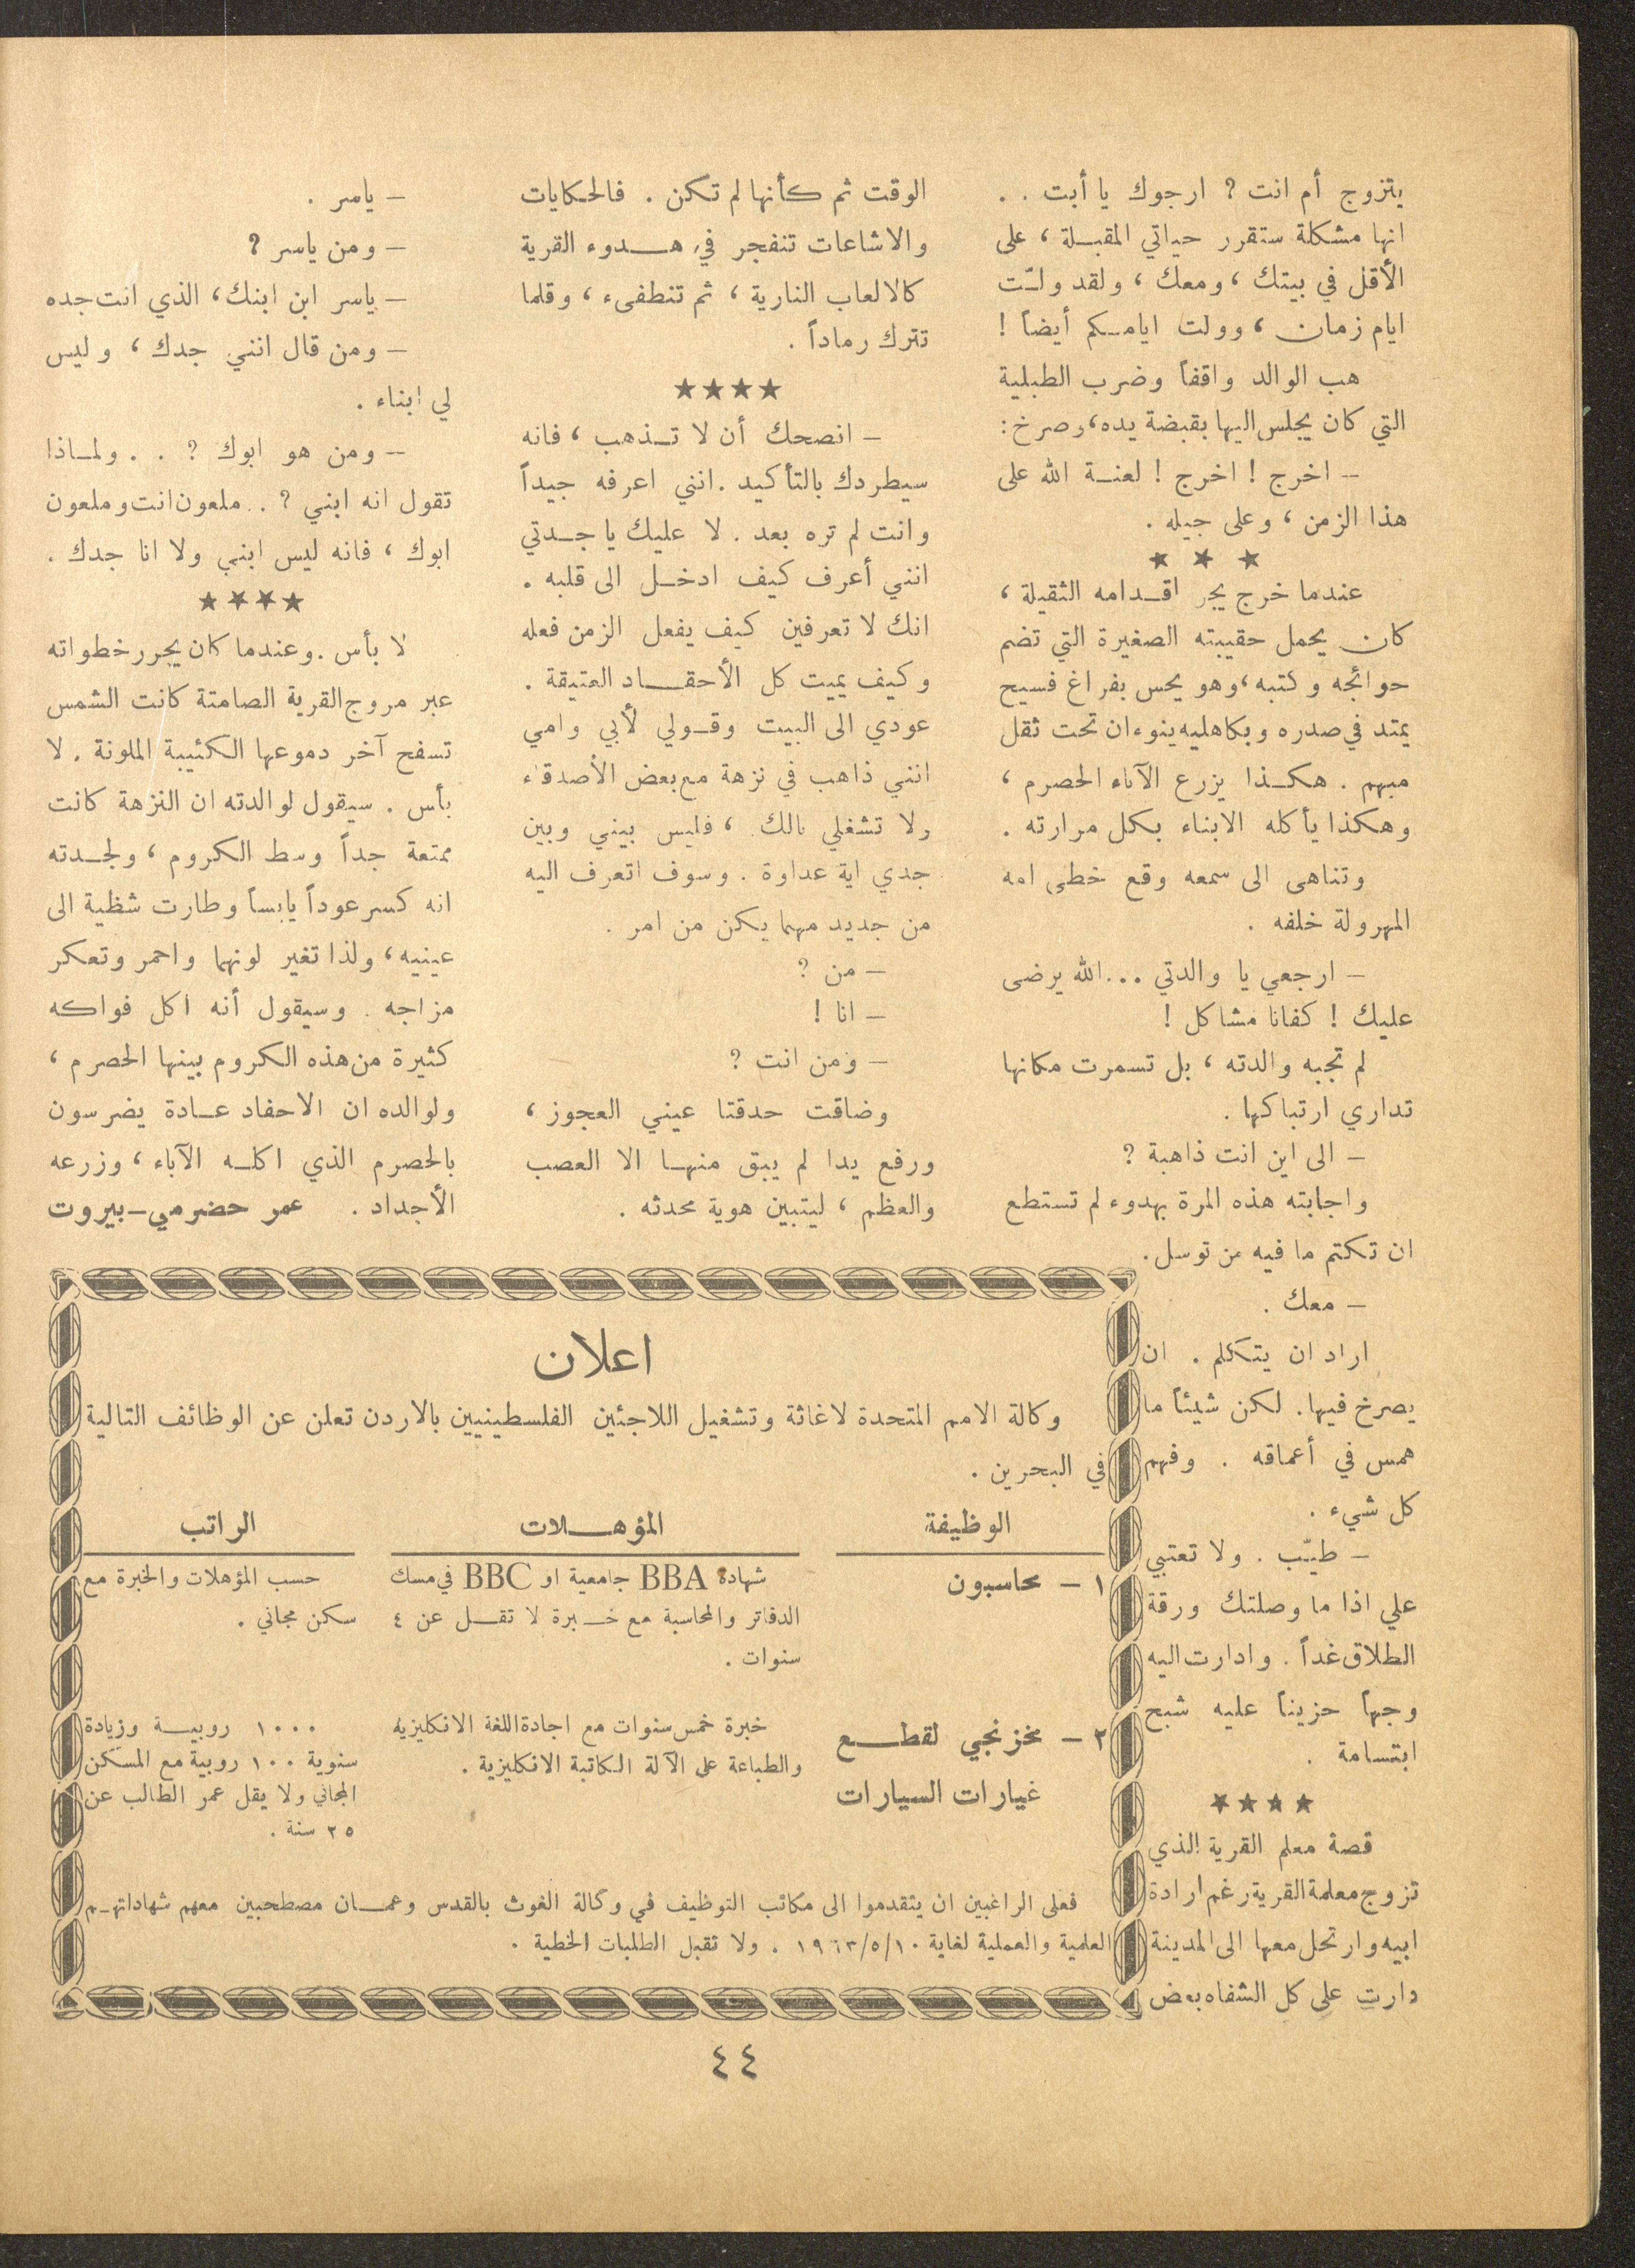 يتزوج أم انت ? ارجوك يا أبت . .
انها مشكلة ستقرر حياتي المقبلة ، على
الأقل في بيتك ، ومعك ، ولقد ولّت
ايام زمان ، وولت ايامكم أيضاً !
هب الوالد واقفاً وضرب الطبلية
التي كان يجلس اليها بقبضة يده، وصرخ :
– اخرج ! اخرج ! لعنة الله على
هذا الزمن ، وعلى جيله .
★ ★ ★
عندما خرج يجر اقدامه الثقيلة ،
كان يحمل حقيبته الصغيرة التي تضم
حوائجه وكتبه ، وهو يحس بفراغ فسيح
يمتد في صدره وبكاهليه ينوءان تحت ثقل
مبهم . هكذا يزرع الآباء الحصرم ،
وهكذا يأكله الابناء بكل مرارته .
وتناهى الى سمعه وقع خطى امه
المهرولة خلفه .
– ارجعي يا والدتي ... الله يرضى
عليك ! كفانا مشاكل !
لم تجبه والدته ، بل تسمرت مكانها
تداري ارتباكها .
– الى اين انت ذاهبة ?
واجابته هذه المرة بهدوء لم تستطع
ان تكتم ما فيه من توسل .
– معك .
اراد ان يتكلم . ان
يصرخ فيها . لكن شيئاً ما
همس في أعماقه . وفهم
كل شيء .
– طيّب . ولا تعتبي
علي اذا ما وصلتك ورقة
الطلاق غداً . وادارت اليه
وجهاً حزيناً عليه شبح
ابتسامة .
★★★★
قصة معلم القرية الذي
تزوج معلمة القرية رغم ارادة
ابيه وارتحل معها الى المدينة
دارت على كل الشفاه بعض
الوقت ثم كأنها لم تكن . فالحكايات
والاشاعات تنفجر في هدوء القرية
كالالعاب النارية ، ثم تنطفىء ، وقلما
تترك رماداً .
★★★★
– انصحك أن لا تذهب ، فانه
سيطردك بالتأكيد . انني اعرفه جيداً
وانت لم تره بعد . لا عليك يا جدتي
انني أعرف كيف ادخل الى قلبه .
انك لا تعرفين كيف يفعل الزمن فعله
وكيف يميت كل الأحقاد العتيقة .
عودي الى البيت وقولي لأبي وامي
انني ذاهب في نزهة مع بعض الأصدقاء
ولا تشغلي بالك ، فليس بيني وبين
جدي اية عداوة . وسوف اتعرف اليه
من جديد مهما يكن من امر .
– من ?
– انا !
– ومن انت ?
وضاقت حدقتا عيني العجوز ،
ورفع يدا لم يبق منها الا العصب
والعظم ، ليتبين هوية محدثه .
– ياسر .
– ومن ياسر ?
– ياسر ابن ابنك ، الذي انت جده
– ومن قال انني جدك ، وليس
لي ابناء .
– ومن هو ابوك ? . . ولماذا
تقول انه ابني ? .. ملعون انت وملعون
ابوك ، فانه ليس ابني ولا انا جدك .
★★★★
لا بأس . وعندما كان يجرر خطواته
عبر مروج القرية الصامتة كانت الشمس
تسفح آخر دموعها الكئيبة الملونة . لا
بأس . سيقول لوالدته ان النزهة كانت
ممتعة جداً وسط الكروم ، ولجدته
انه كسر عوداً يابساً وطارت شظية الى
عينيه ، ولذا تغير لونهما واحمر وتعكر
مزاجه . وسيقول أنه اكل فواكه
كثيرة من هذه الكروم بينها الحصرم ،
ولوالده ان الاحفاد عادة يضرسون
بالحصرم الذي اكله الآباء ، وزرعه
الأجداد . عمر حضرمي–بيروت
اعلان
وكالة الامم المتحدة لاغاثة وتشغيل اللاجئين الفلسطينيين بالاردن تعلن عن الوظائف التالية
في البحرين .
الوظيفة المؤهلات الراتب
١ – محاسبون
شهادة BBA جامعية او BBC في مسك
الدفاتر والمحاسبة مع خبرة لا تقل عن ٤
سنوات .
حسب المؤهلات والخبرة مع
سكن مجاني .
٢ – مخزنجي لقطع
غيارات السيارات
خبرة خمس سنوات مع اجادة اللغة الانكليزية
والطباعة على الآلة الكاتبة الانكليزية .
١٠٠٠ روبية وزيادة
سنوية ١٠٠ روبية مع المسكن
المجاني ولا يقل عمر الطالب عن
٢٥ سنة .
فعلى الراغبين ان يتقدموا الى مكاتب التوظيف في وكالة الغوث بالقدس وعمان مصطحبين معهم شهاداتهم
العلمية والعملية لغاية ١٩٦٣/٥/١٠ . ولا تقبل الطلبات الخطية .
٤٤